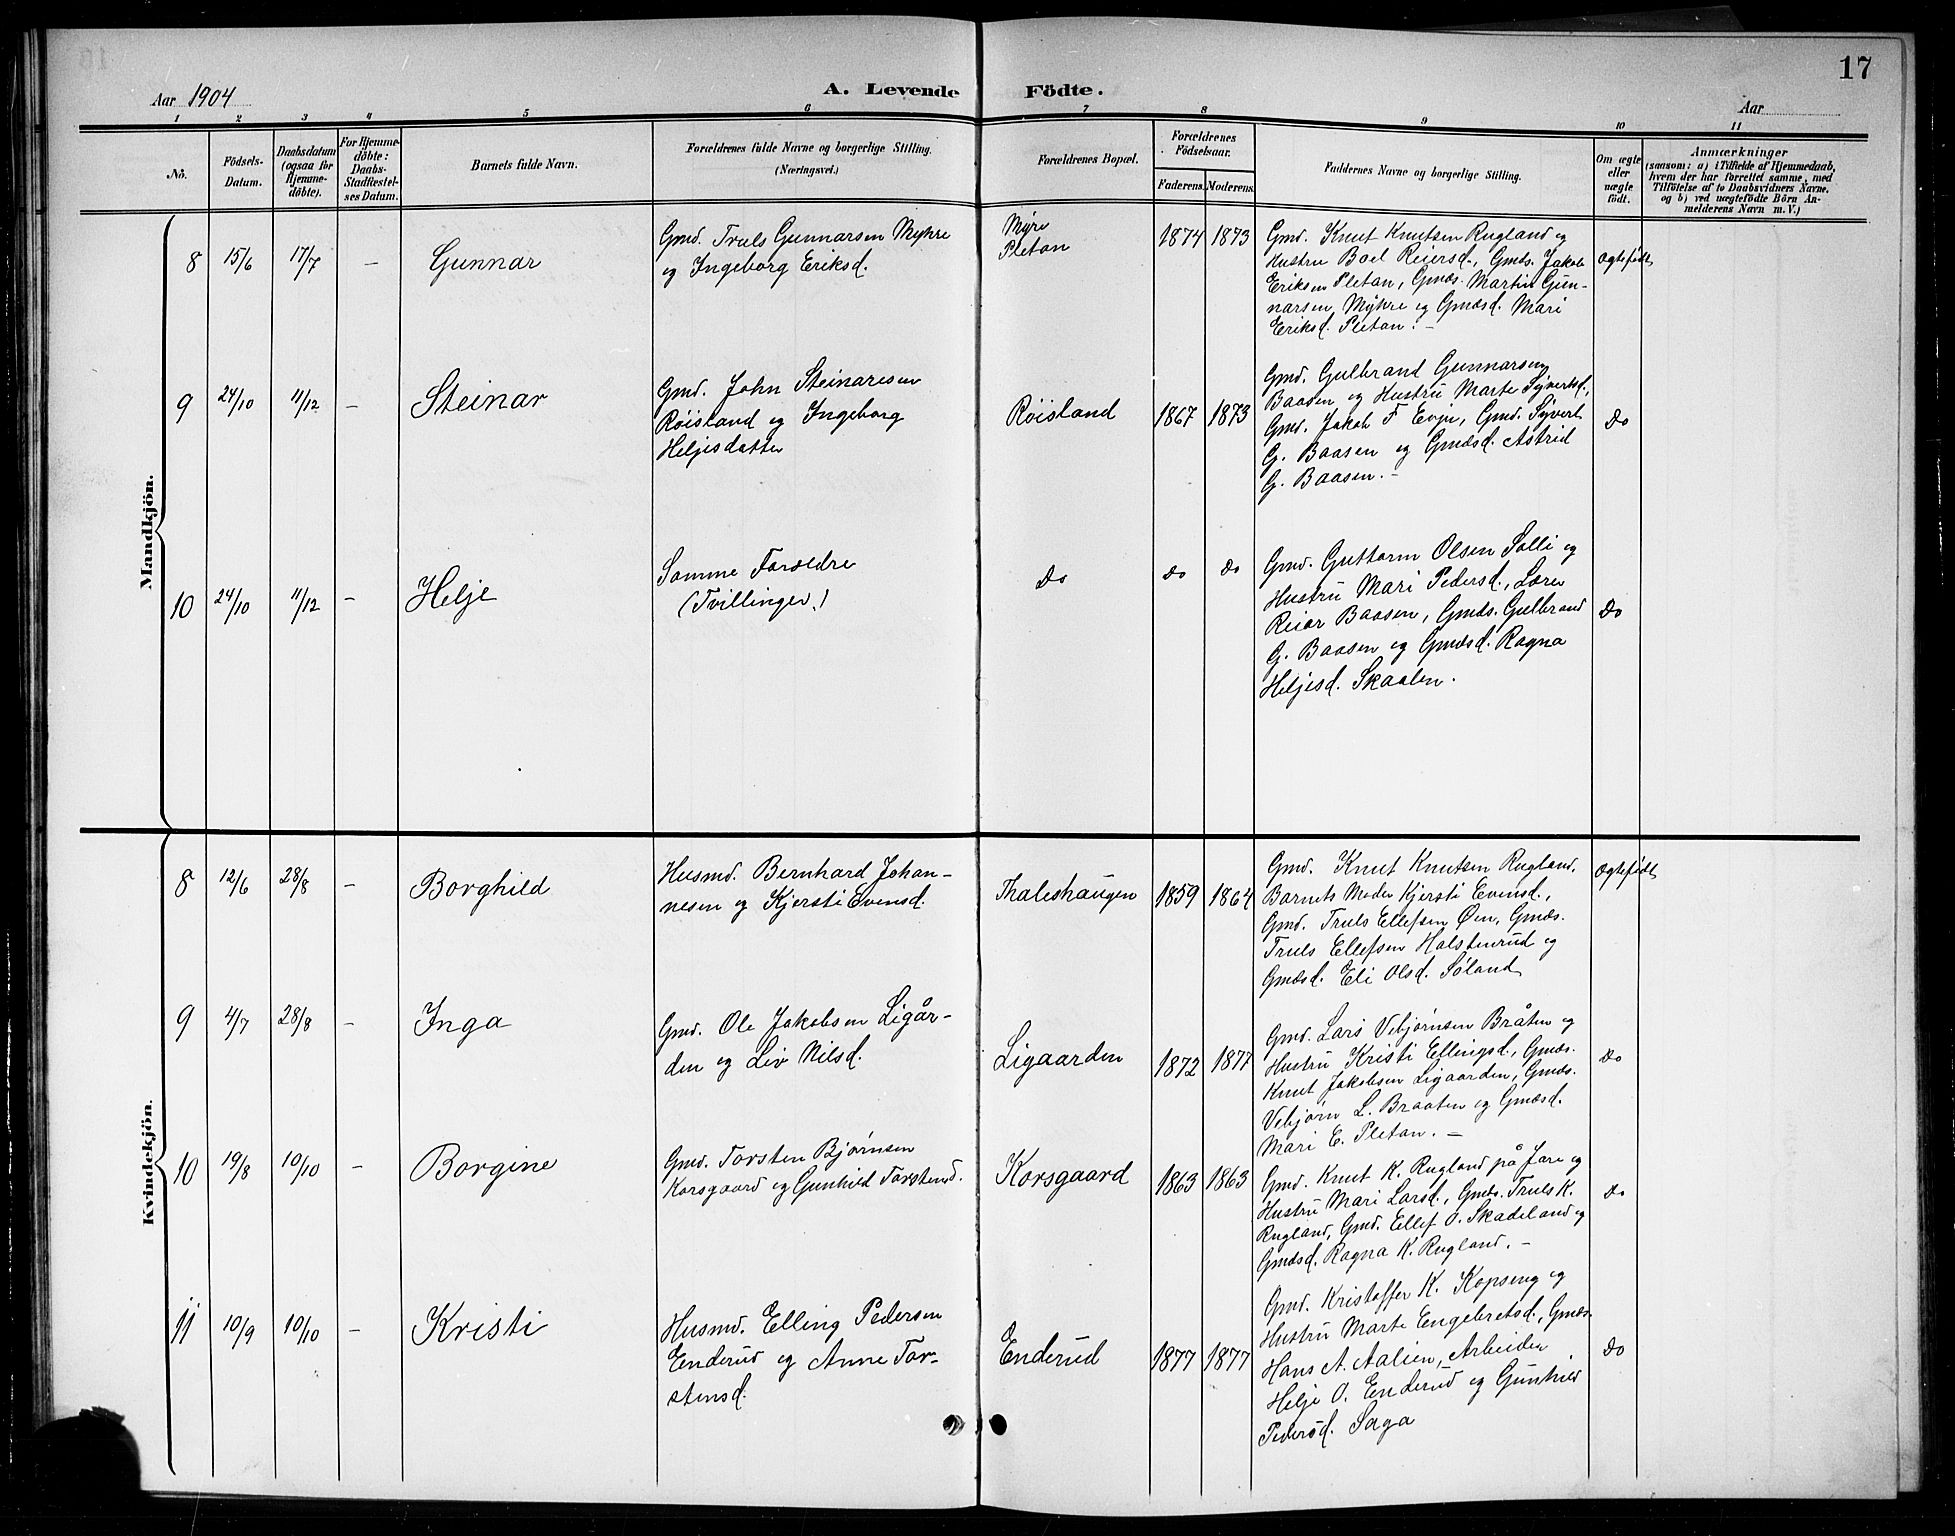 17
Aar 1904
A. Levende Födte.
Aar
1 2 3 4 5 6 7 8 9 10 11
Nö.
Födsels-
Datum.
Daabsdatum
(ogsaa for
Hjemme-
döbte).
For Hjemme-
döbte:
Daabs-
Stadfæstel-
ses Datum.
Barnets fulde Navn.
Forældrenes fulde Navne og borgerlige Stilling.
(Næringsvei.)
Forældrenes Bopæl.
Forældrenes
Födselsaar.
Faderens. Moderens.
Faddernes Navne og borgerlige Stilling.
Om ægte
eller
uægte
födt.
Anmærkninger
(saasom: a) i Tilfælde af Hjemmedaab,
hvem der har forrettet samme, med
Tilföielse af to Daabsvidners Navne.
og b) ved uægtefödte Börn An-
melderens Navn m. V.)
Mandkjön.
8 15/6 17/7 – Gunnar
Gmd. Truls Gunnarsen Myhre
og Ingeborg Eriksd.
Myre
Pletan
1874 1873
Gmd. Knut Knutsen Rugland og
Hustru Boel Reiersd., Gmds. Jakob
Eriksen Pletan, Gmds. Martin Gun-
narsen Myhre og Gmdsd. Mari
Eriksd. Pletan. –
Ægtefödt
9 24/10 11/12 – Steinar
Gmd. John Steinarsen
Röisland og Ingeborg
Heljesdatter
Röisland
1867 1873
Gmd. Gulbrand Gunnarsen
Baasen og Hustru Marte Syversd.,
Gmd. Jakob F. Evje, Gmd. Syvert
G. Baasen og Gmdsd. Astrid
G. Baasen. –
Do
10 24/10 11/12 – Helje
Samme Foræeldre
(Tvillinger.)
Do
Do Do
Gmd. Guttorm Olsen Solli og
Hustru Mari Pedersd., Lærer
Reiar Baasen, Gmds. Gulbrand
G. Baasen og Gmdsd. Ragna
Heljesd. Skaalen.
Do
Kvindekjön.
8 12/6 28/8 – Borghild
Husmd. Bernhard Johan-
nesen og Kjersti Evensd.
Thaleshaugen
1859 1864
Gmd. Knut Knutsen Rugland.
Barnets Moder Kjersti Evensd.,
Gmd. Truls Ellefsen Øen, Gmds.
Truls Ellefsen Halstenrud og
Gmdsd. Eli Olsd. Söland
Ægtefödt
9 4/7 28/8 – Inga
Gmd. Ole Jakobsen Ligår-
den og Liv Nilsd.
Ligaarden
1872 1877
Gmd. Lars Vebjørnsen Bråten og
Hustru Kristi Ellingsd., Gmds.
Knut Jakobsen Ligaarden, Gmds.
Vebjörn L. Braaten og Gmdsd.
Mari E. Pletan. –
Do
10 19/8 10/10 – Borgine
Gmd. Torsten Bjørnsen
Korsgaard og Gunhild Torstensd.
Korsgaard
1863 1863
Gmd. Knut K. Rugland på Jare og
Hustru Mari Larsd., Gmds. Truls K.
Rugland, Gmd. Ellef O. Skadeland og
Gmdsd. Ragna K. Rugland. –
Do
11 10/9 10/10 – Kristi
Husmd. Elling Pedersen
Enderud og Anne Tor-
stensd.
Enderud
1877 1877
Gmd. Kristoffer K. Kopseng og
Hustru Marte Engebretsd., Gmds.
Hans A. Aalien, Arbeider
Helje O. Enderud og Gunhild
Pedersd. Saga
Do